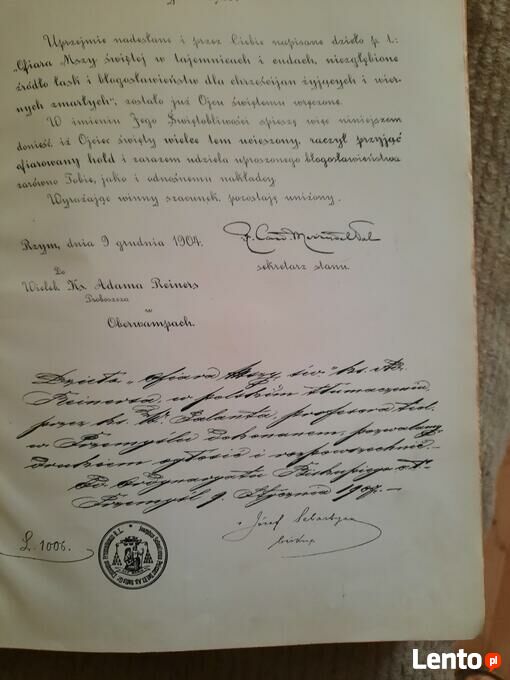 Uprzejmie nadesłane i przez Ciebie napisane dzieło p. t.:
„Ofiara Mszy świętej w tajemnicach i cudach, niezgłębione
źródło łask i błogosławieństw dla chrześcijan żyjących i wier-
nych zmarłych", zostało już Ojcu świętemu wręczone.
W imieniu Jego Świętobliwości spieszę więc niniejszem
donieść, iż Ojciec święty wielce tem ucieszony, raczył przyjąć
ofiarowany hołd i zarazem udziela uproszonego błogosławieństwa
zarówno Tobie, jako i odnośnemu nakładcy.
Wyrażając winny szacunek, pozostaję uniżony.
Rzym, dnia 9 grudnia 1904.
R. Card. Merry del Val
sekretarz stanu.
Do
Wieleb. Ks. Adama Reiners
Proboszcza
w
Oberwampach.
Dzieło „Ofiara Mszy św." ks. Ad.
Reinersa, w polskim tłumaczeniu
przez ks. W. Galanta, profesora teol.
w Przemyślu dokonanem, pozwalamy
drukiem ogłosić i rozpowszechnić.-
Od Ordynaryatu Biskupiego o. ł.
Przemyśl 9. Stycznia 1907.-
+ Józef Sebastyan
biskup
L. 1006.
Lento.pl